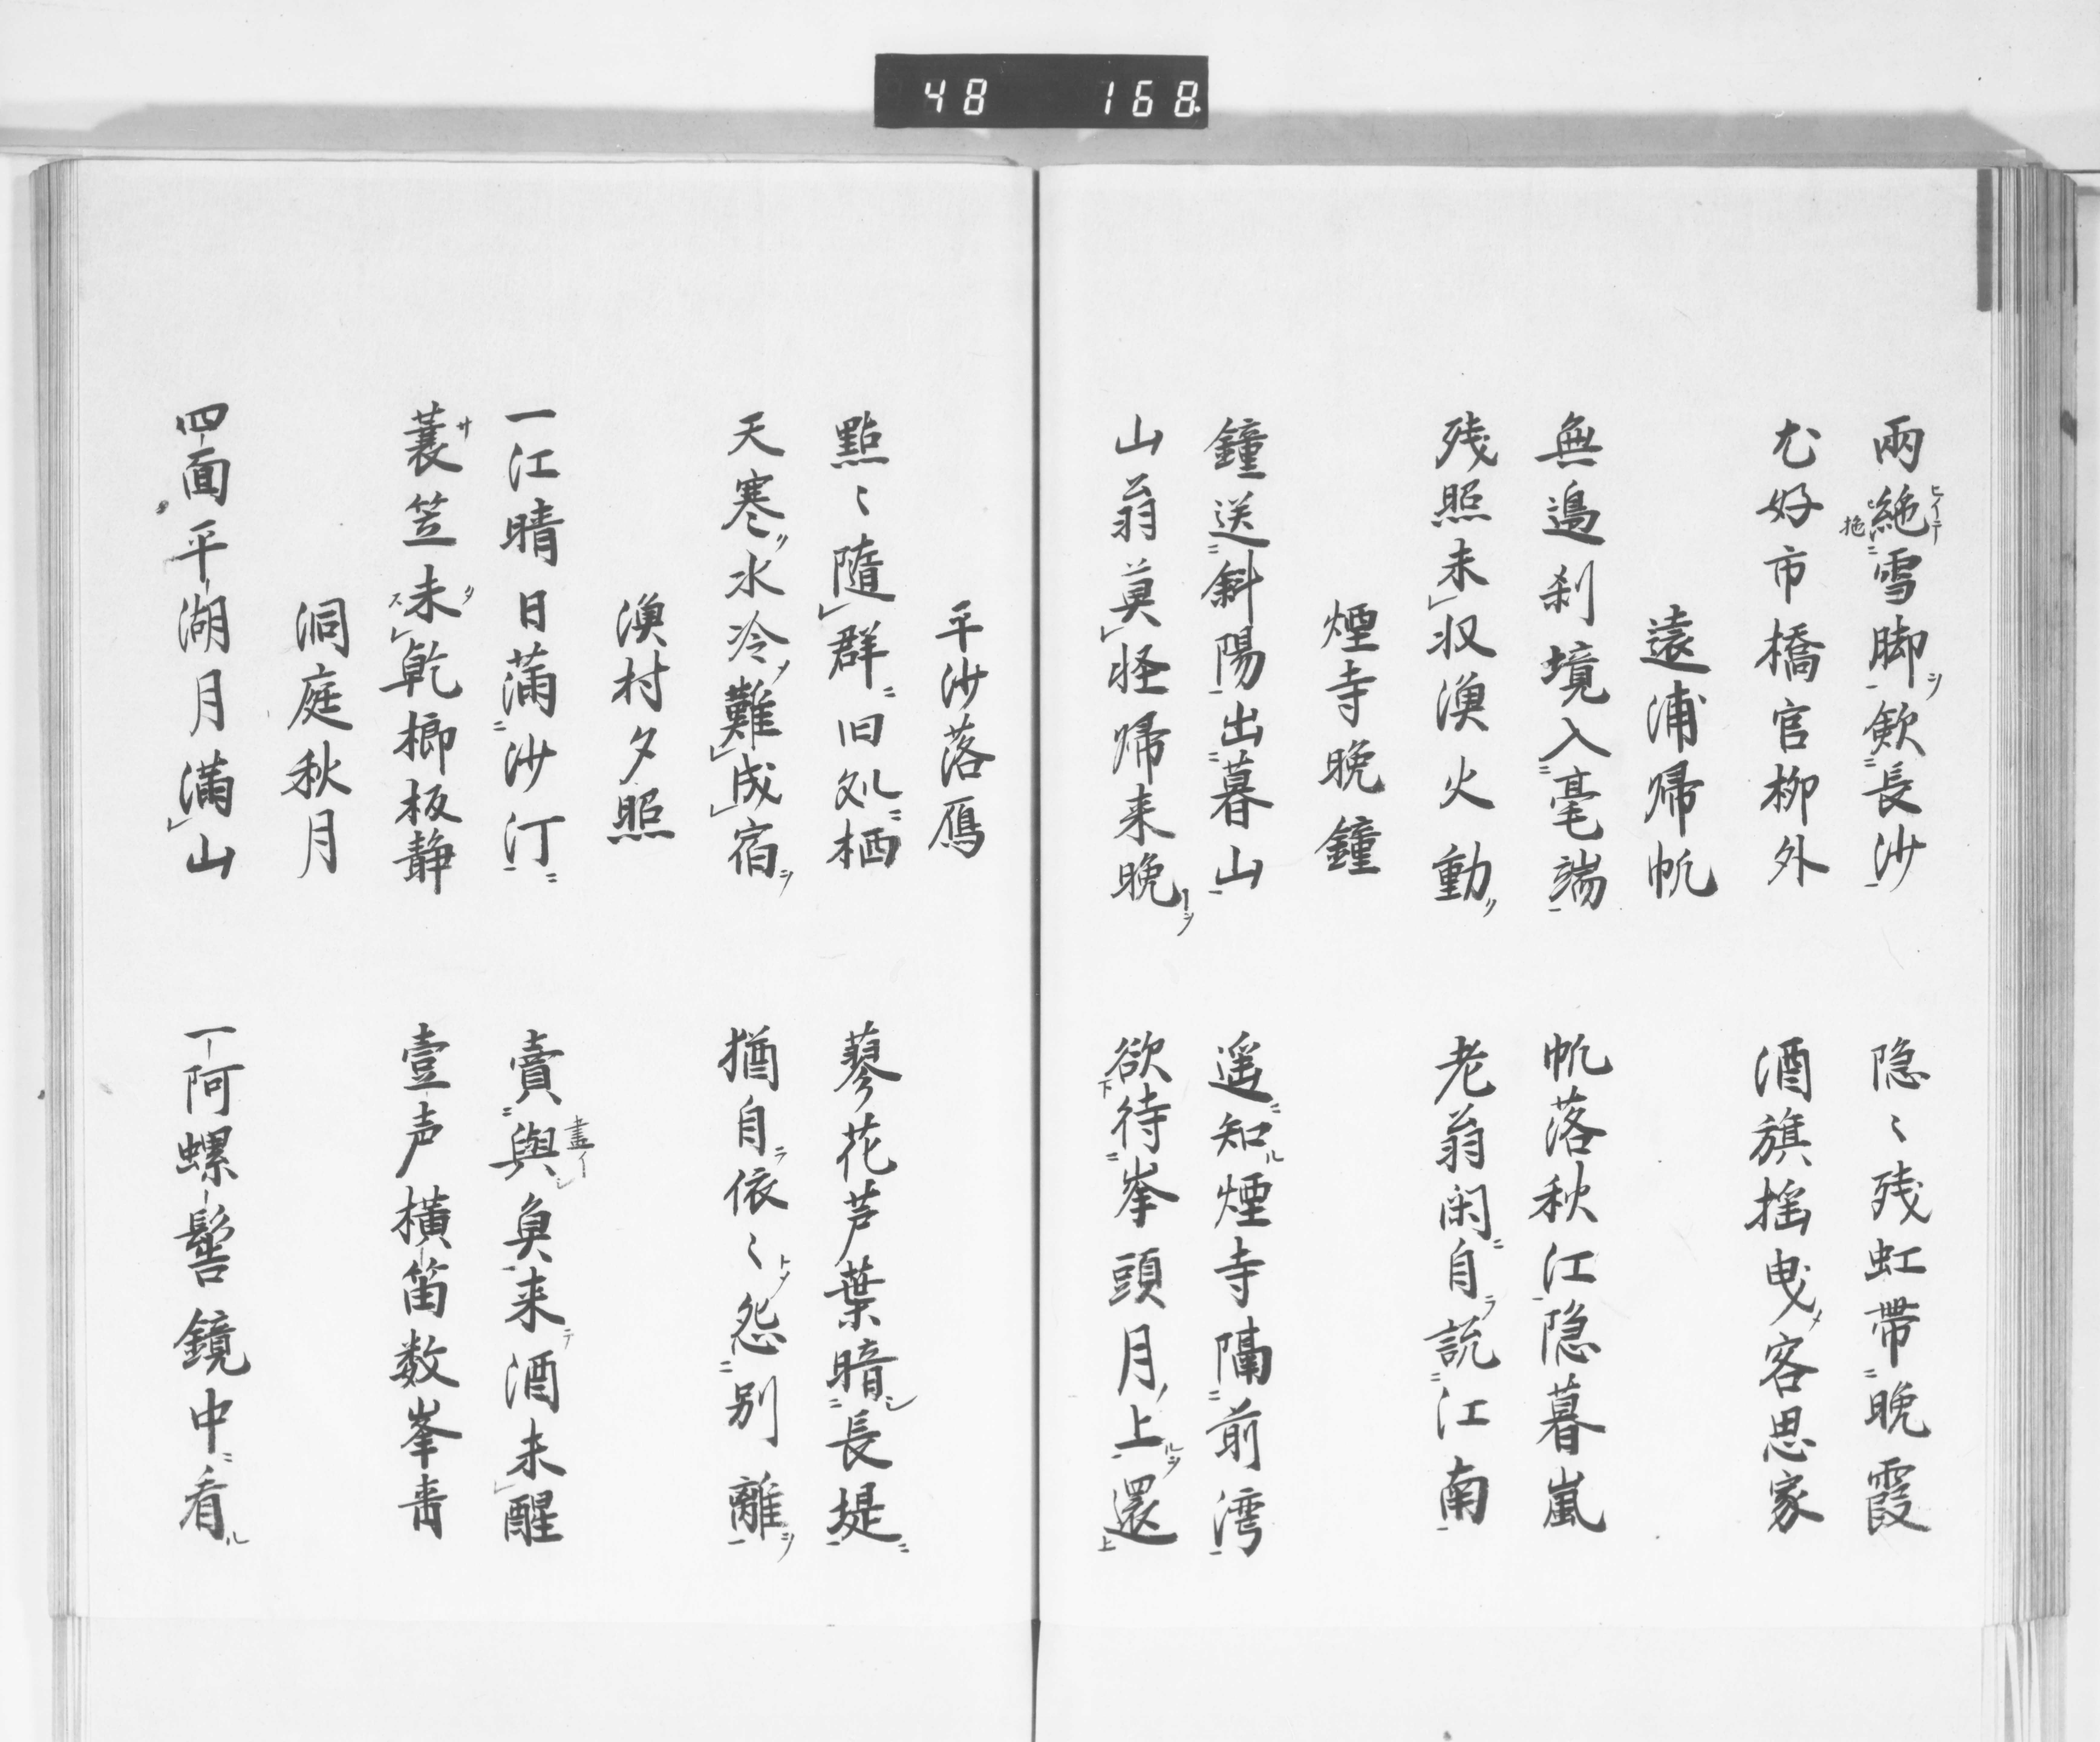 48 168
兩絁雪脚歛長沙 隠〻残虹帶晩霞
尤好市橋官柳外 酒旗揺曳客思家
遠浦帰帆
無邉刹境入毫端 帆落秋江隠暮嵐
残照未収漁火動 老翁閑自説江南
煙寺晩鐘
鐘送斜陽出暮山 遥知煙寺隔前湾
山翁莫怪帰来晩 欲待峯頭月上還
平沙落鴈
點〻隨群旧処栖 蓼花芦葉暗長堤
天寒水冷難成宿 猶自依〻怨別離
漁村夕照
一江晴日満沙汀 賣與魚来酒未醒
蓑笠未乾榔板静 壹声横笛数峯青
洞庭秋月
四面平湖月満山 一阿螺髻鏡中看